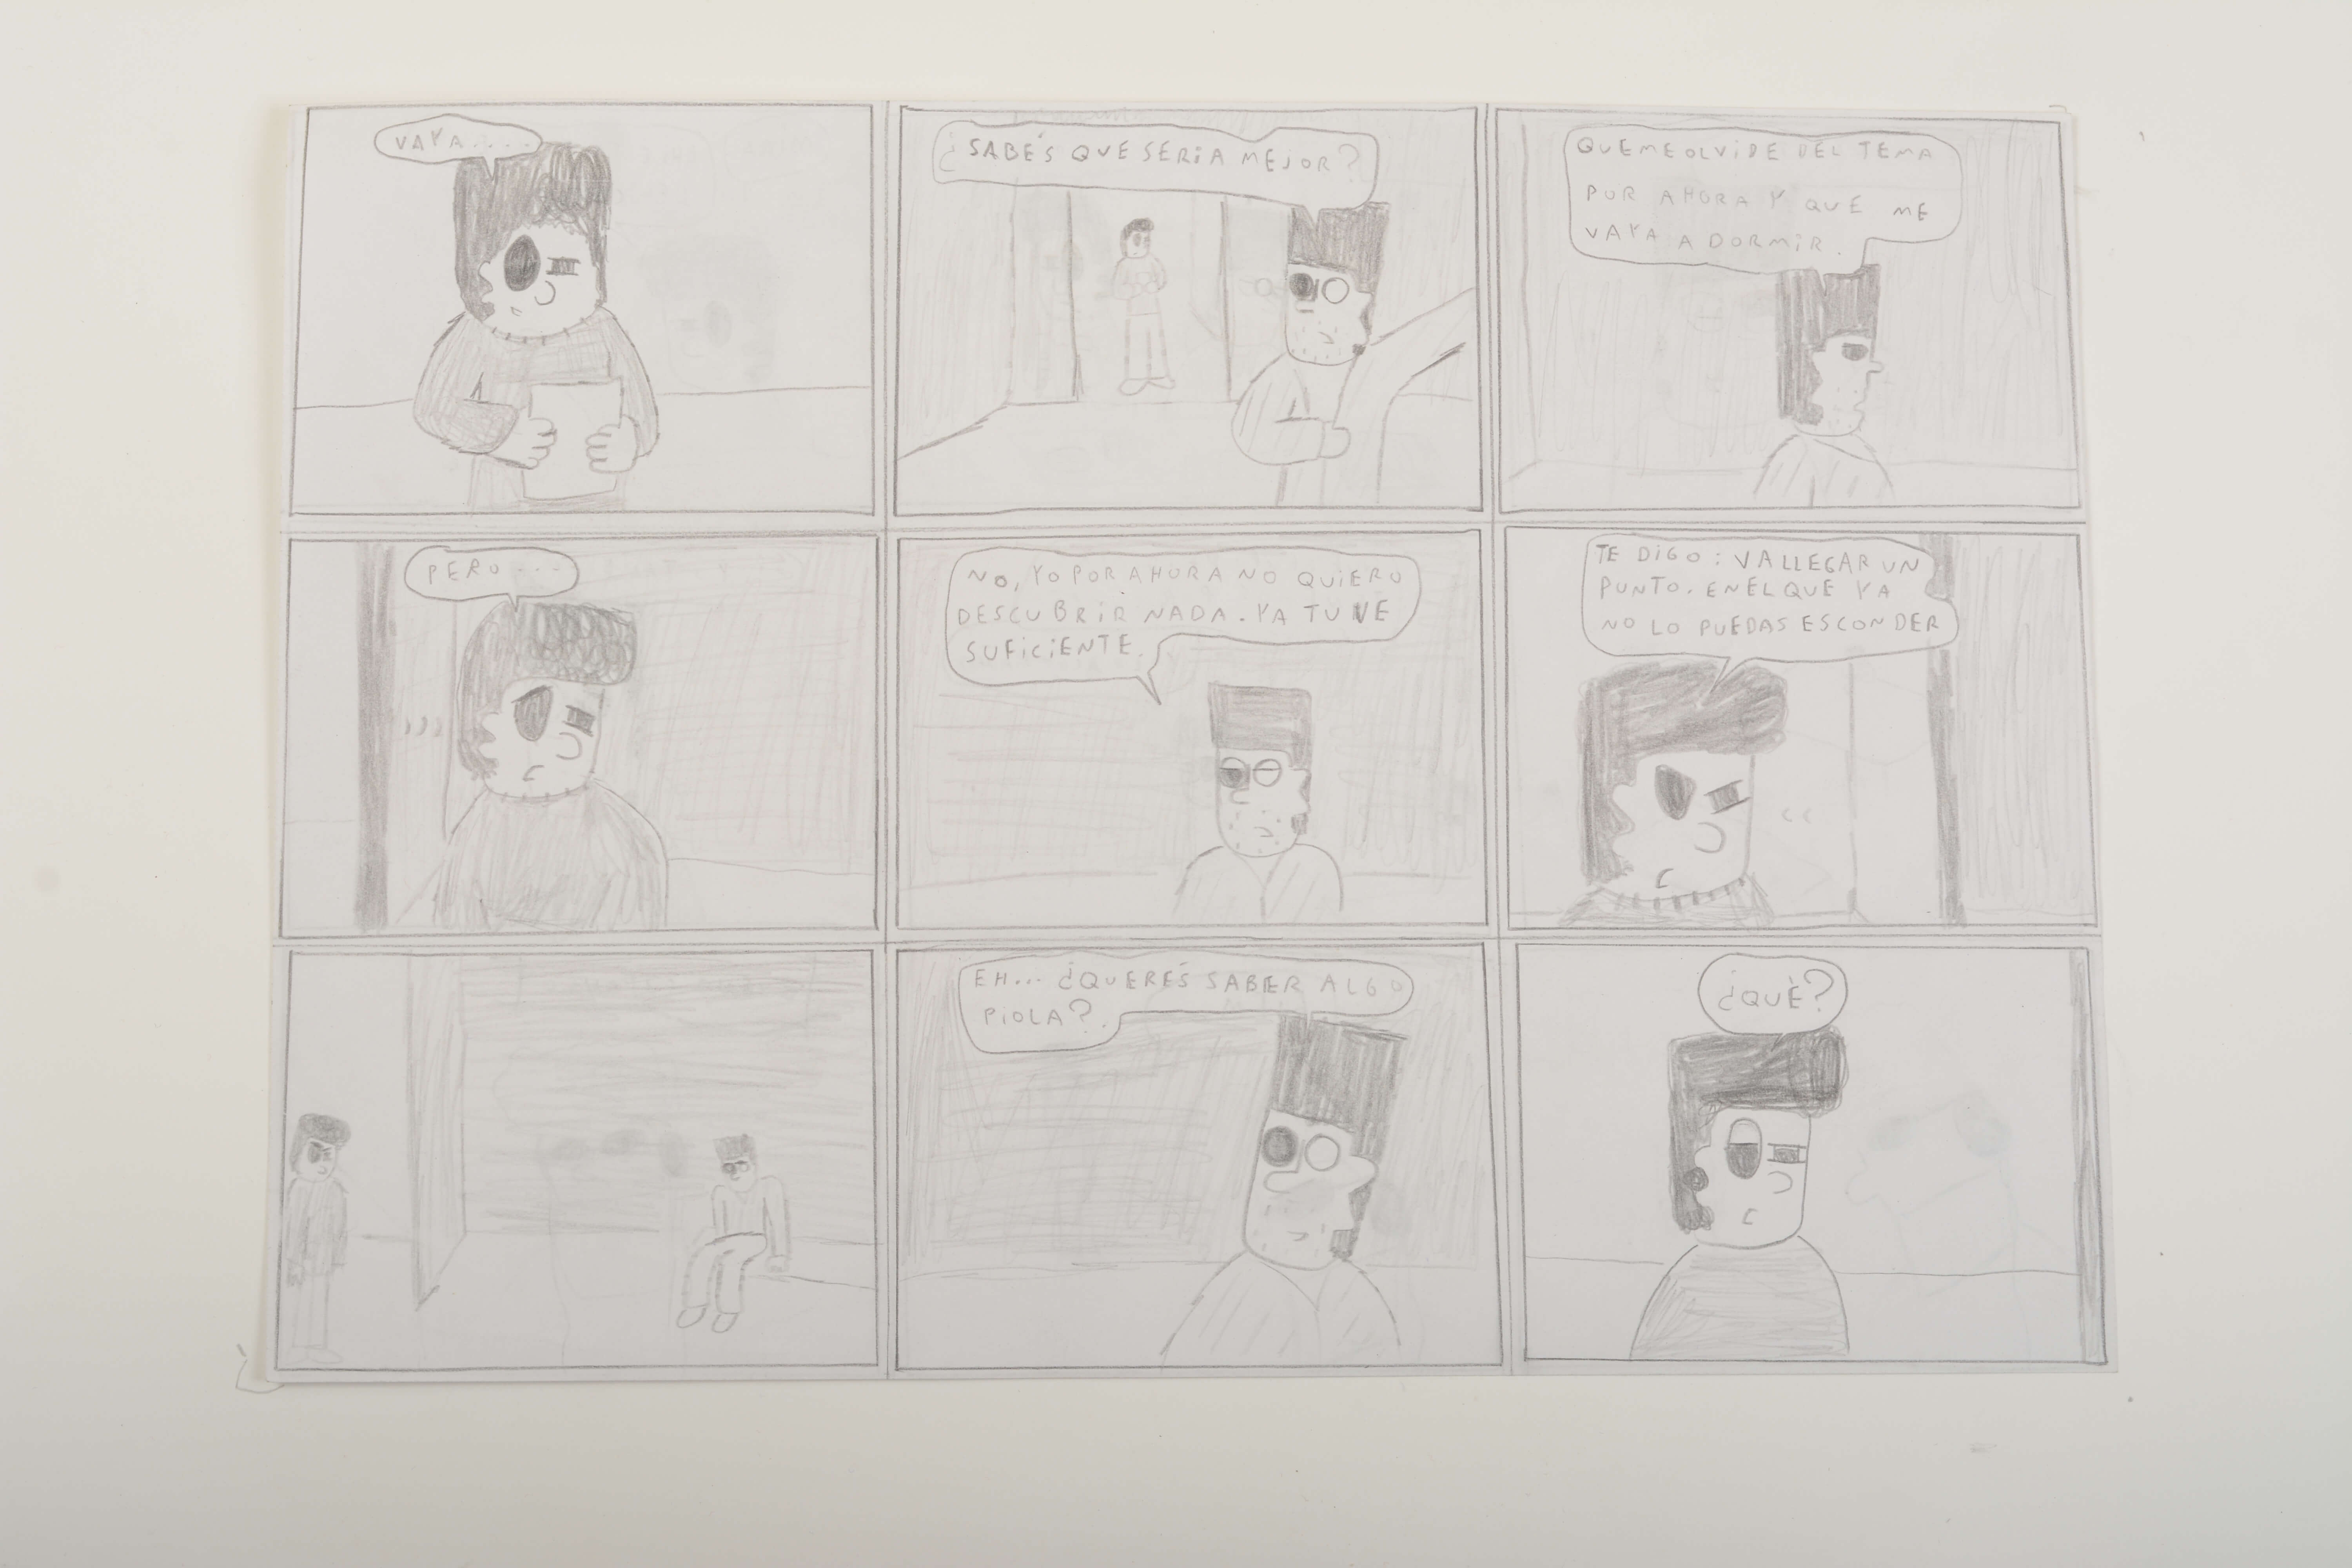 VAYA....
¿SABÉS QUE SERIA MEJOR?
QUE ME OLVIDE DEL TEMA
POR AHORA Y QUE ME
VAYA A DORMIR.
PERO ...
NO, YO POR AHORA NO QUIERO
DESCUBRIR NADA. YA TUVE
SUFICIENTE.
TE DIGO: VA LLEGAR UN
PUNTO. EN EL QUE YA
NO LO PUEDAS ESCONDER
EH... ¿QUERÉS SABER ALGO
PIOLA?.
¿QUÉ?